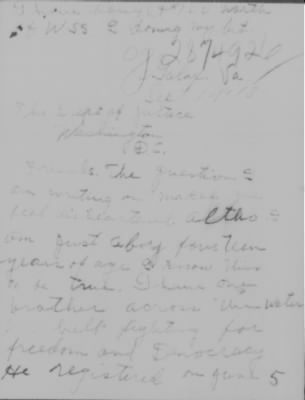 I have
of WSS & doing my bit
Galax Va
The Dept of Justice
Washington
D.C.
Friends. The question I
am writing on makes me
feel altho I
am just a boy fourteen
years of age I know this
to be true. I have one
brother across the water
fighting for
freedom and Democracy
He registered on June 5